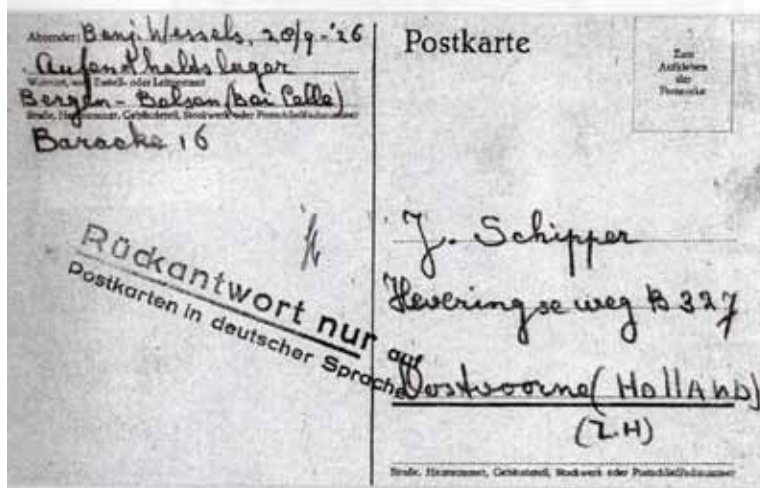 Absender: Benj. Wessels, 20/9-'26
Aufenthaltslager
Wohnort, auch Zustell- oder Leitpostamt
Bergen-Belsen (Bei Celle)
Straße, Hausnummer, Gebäudeteil, Stockwerk oder Postschließfachnummer
Baracke 16
Rückantwort nur auf
Postkarten in deutscher Sprache
Postkarte
Zum
Aufkleben
der
Postmarke
J. Schipper
Heveringseweg B 327
Oostvoorne (HollAND)
(Z.H)
Straße, Hausnummer, Gebäudeteil, Stockwerk oder Postschließfachnummer